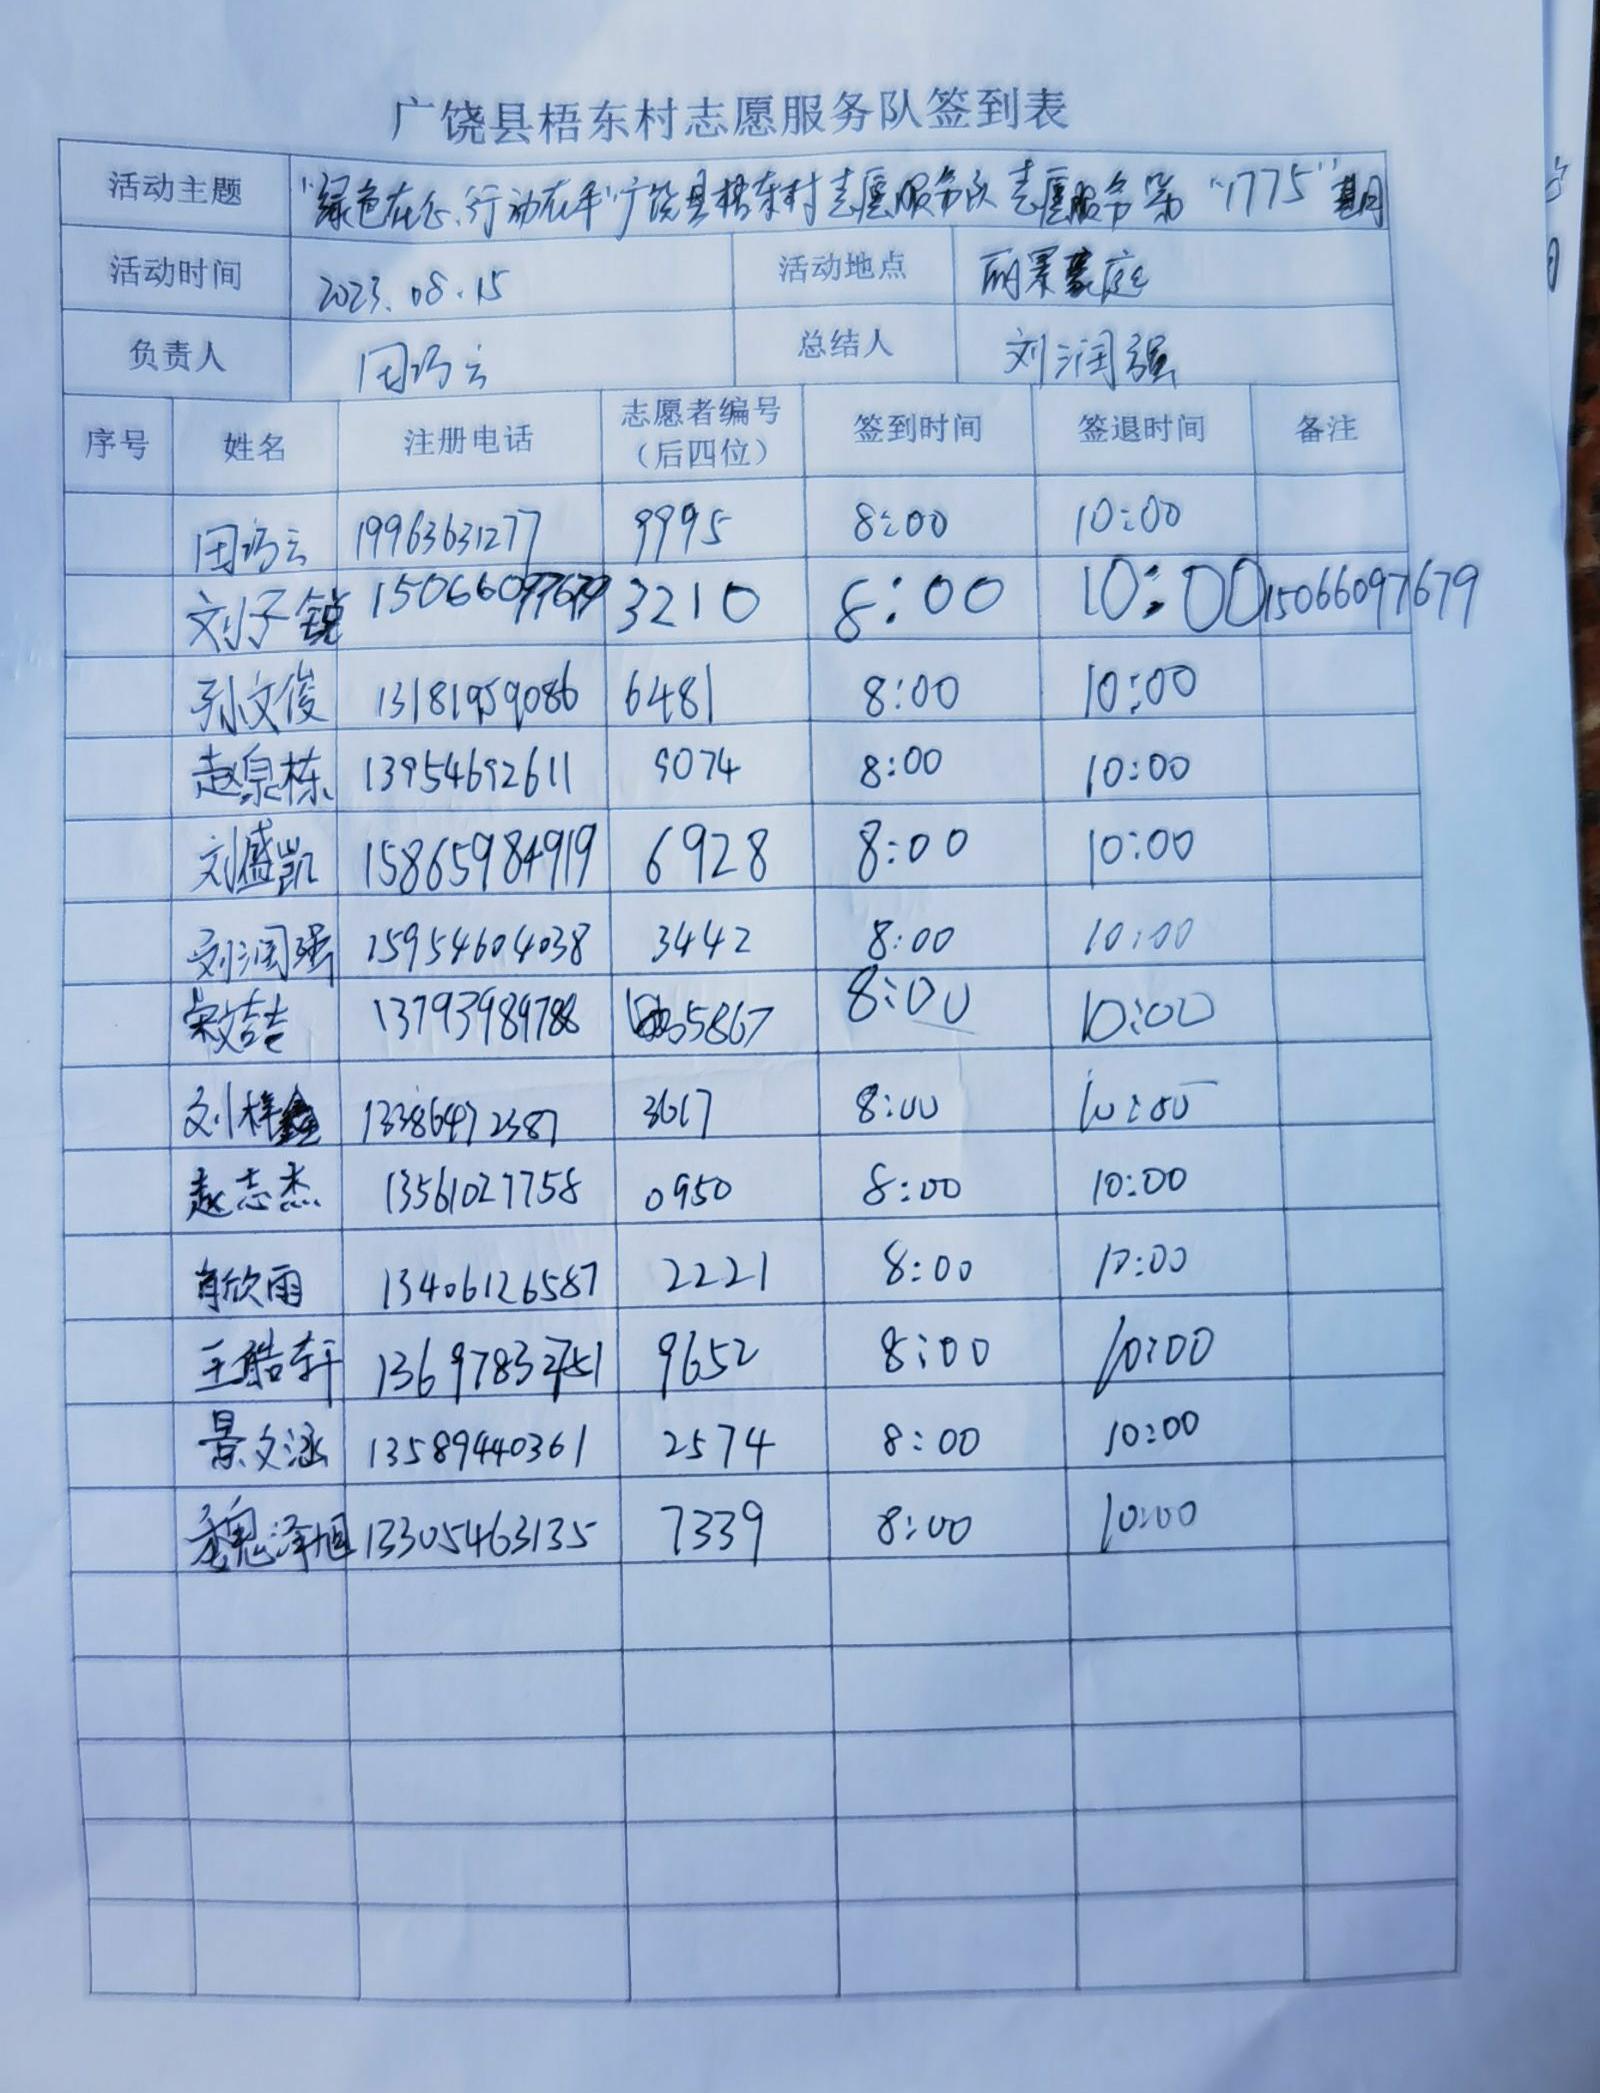 广饶县梧东村志愿服务队签到表
活动主题 "绿色在心、行动在手"广饶县梧东村志愿服务队志愿服务第"1775"期
活动时间 2023.08.15 活动地点 丽景豪庭
负责人 总结人 刘润强
序号 姓名 注册电话 志愿者编号（后四位） 签到时间 签退时间 备注
19963631277 9995 8:00 10:00
刘子锐 15066097679 3210 8:00 10:00 15066097679
孙文俊 13181959086 6481 8:00 10:00
赵泉栋 13954692611 9074 8:00 10:00
刘盛凯 15865984919 6928 8:00 10:00
刘润强 15954604038 3442 8:00 10:00
13793989788 5867 8:00 10:00
刘梓鑫 13386472387 3617 8:00 10:00
赵志杰 13561027758 0950 8:00 10:00
肖欣雨 13406126587 2221 8:00 10:00
王皓轩 9652 8:00 10:00
景文涵 13589440361 2574 8:00 10:00
魏泽旭 13305463135 7339 8:00 10:00